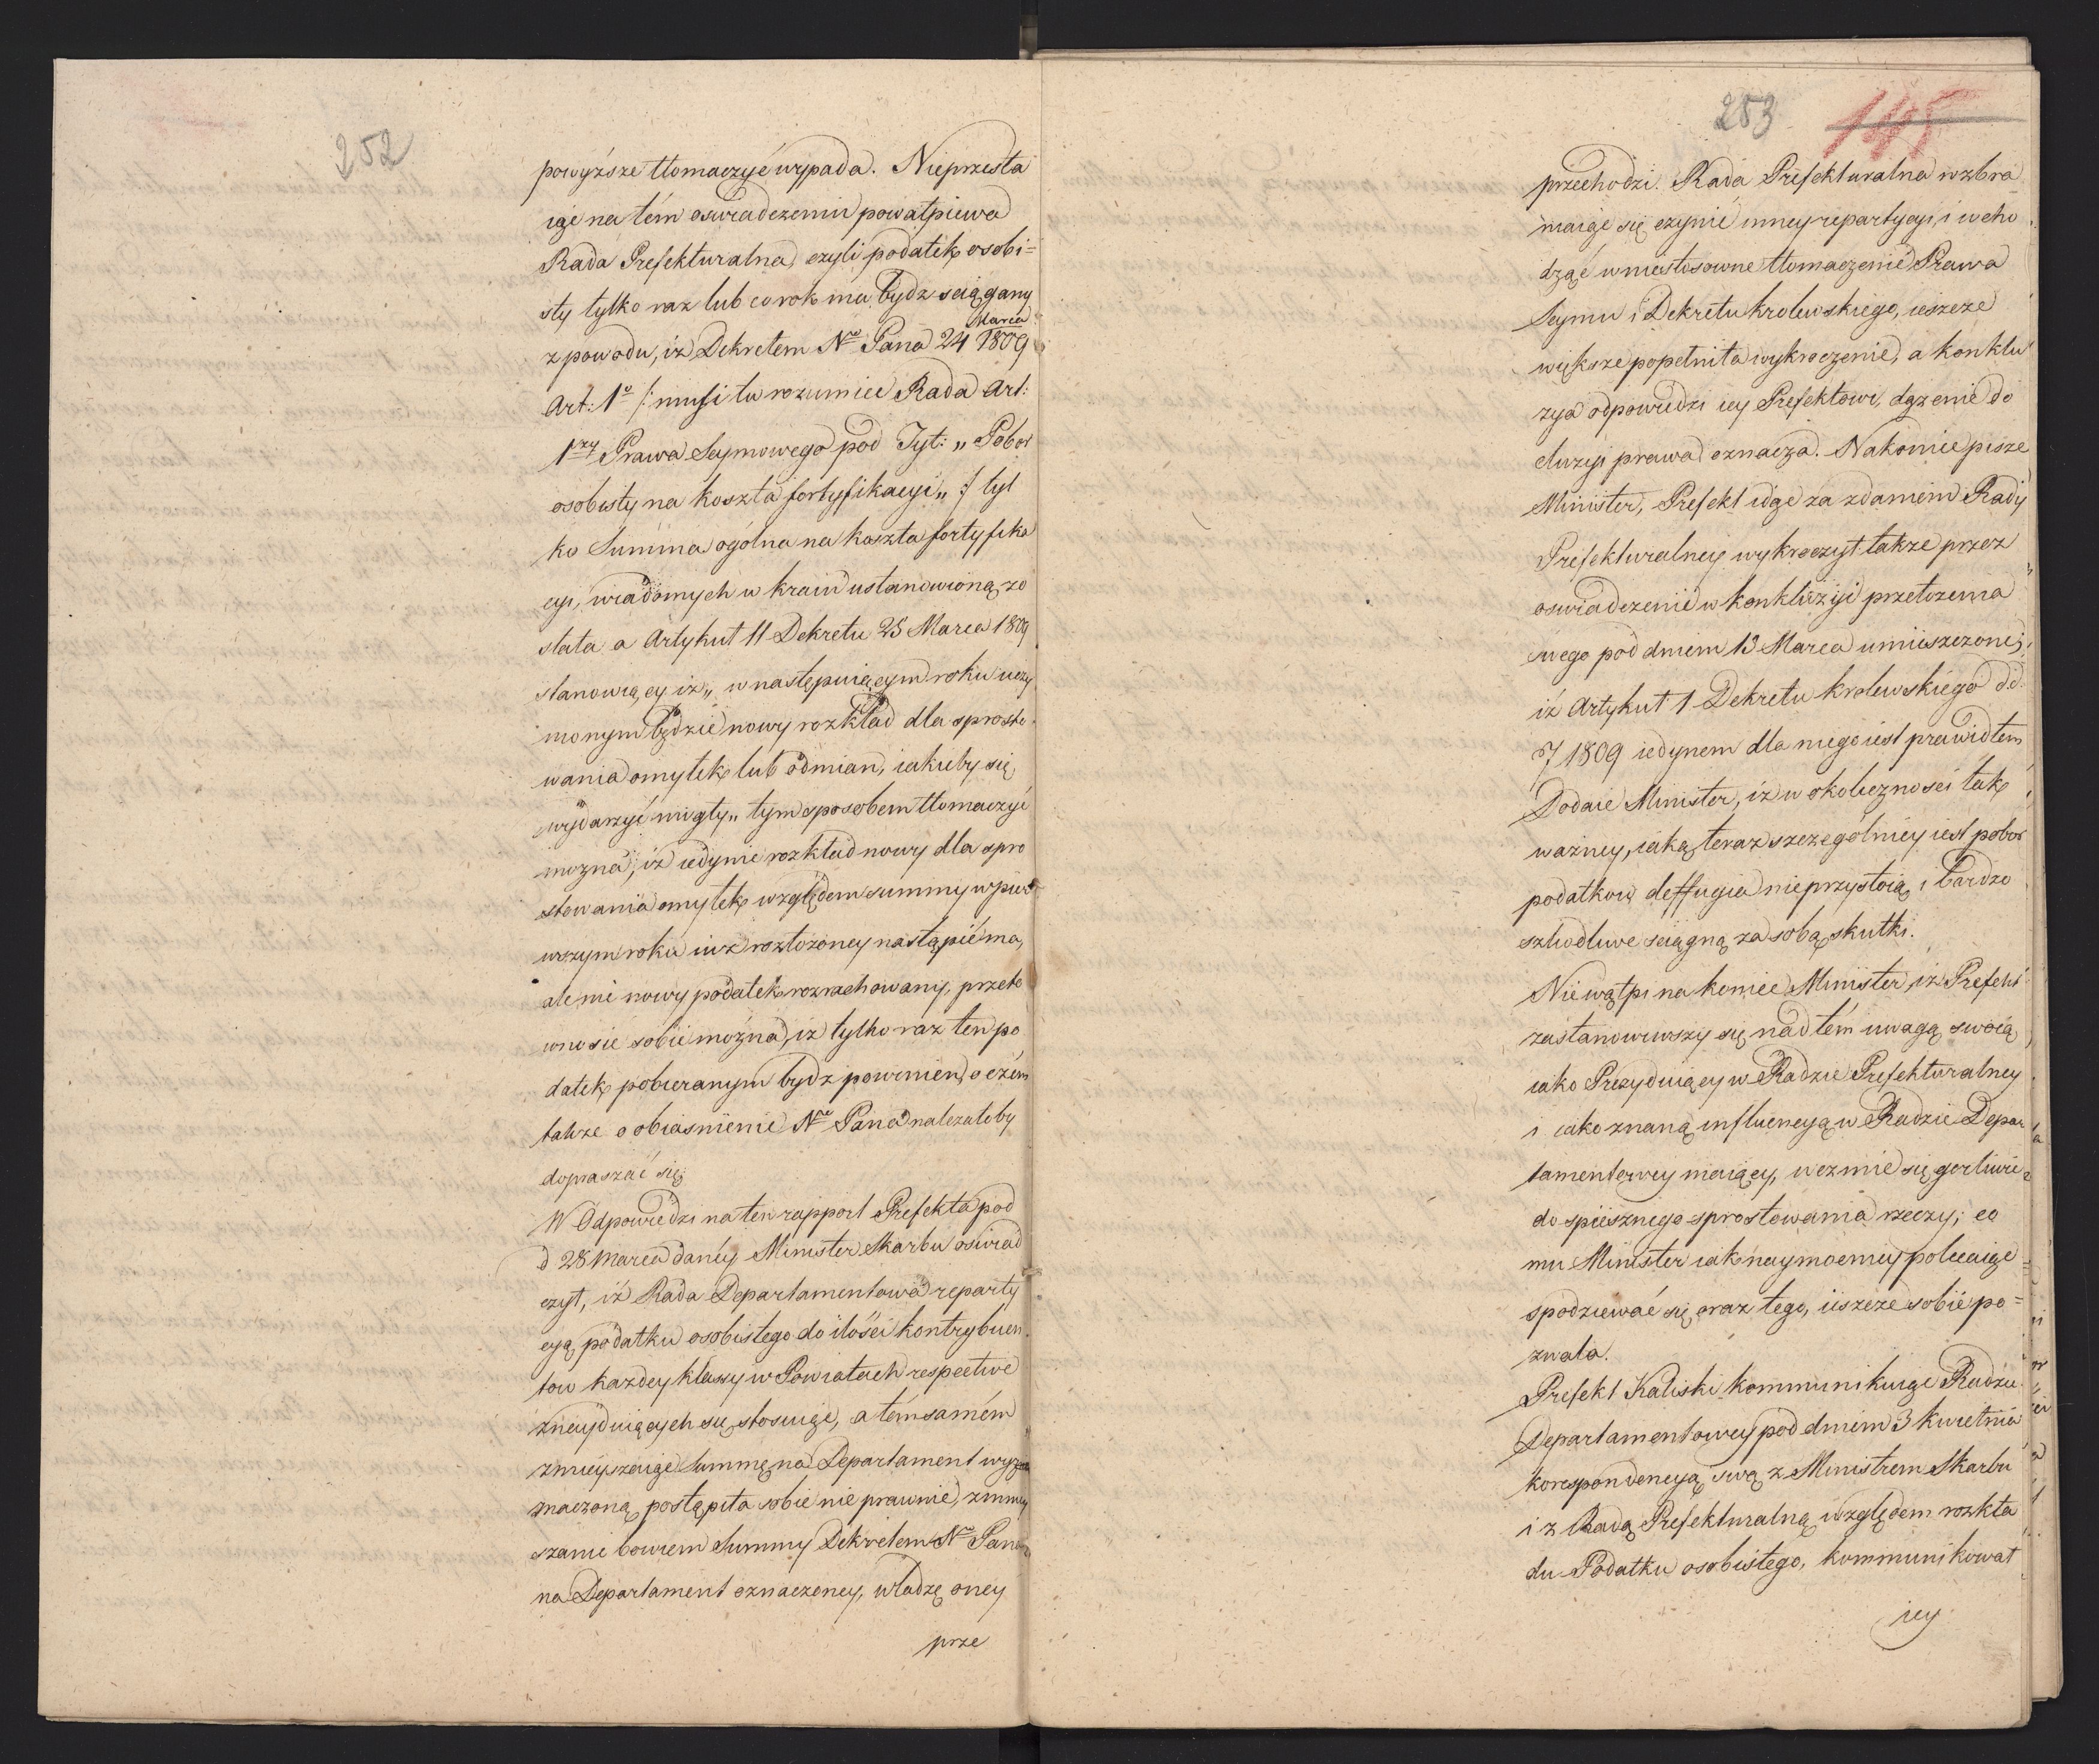 252
powyższe tłomaczyć wypada. Nieprzesta
iąc na tém oswiadczeniu powątpiewa
Rada Prefekturalna, czyli podatek osobi=
sty tylko raz lub co rok ma bydz sciągany
z powodu, iż Dekretem Nro Pana 24 Marca 1809
Art: 1o /: musi tu rozumiec Rada Art:
1szy Prawa Seymowego pod Tyt: „ Pobor
osobisty na koszta fortyfikacyi „ :/ tyl
ko Summa ogólna na koszta fortyfika
cyi, wiadomych w kraiu ustanowioną zo
stała a Artykuł 11 Dekretu 25 Marca 1809
stanowiący iż „ w następuiącym roku uczy
nionym będzie nowy rozkład dla sprosto
wania omyłek lub odmian, iakieby się
wydarzyć mogły „ tym sposobem tłomaczyć
mozna, iż iedynie rozkład nowy dla spro
stowania omyłek względem summy w pier
wszym roku iuż rozłożoney nastąpić ma,
ale nie nowy podatek rozrachowany, przeto
wnosić sobie można, iz tylko raz ten po
datek pobieranym bydz powinien, o czém
takze o obiasnienie Nro Pana nalezałoby
dopraszać się
W Odpowiedzi na ten rapport Prefekta pod
d 28 Marca daney Minister Skarbu oswiad
czył, iż Rada Departamentowa reparty
cyą podatku osobistego do ilości kontrybuen
tow kazdey klassy w Powiatach respective
znayduiących się stosuiąc, a tém samém
zmieyszaiąc Summę na Departament wy
znaczoną, postąpiła sobie nie prawnie, zmniey
szanie bowiem Summy Dekretem Nro Pana
na Departament oznaczoney, władzę oney
prze
253 145
przechodzi. Rada Prefekturalna wzbra
niaiąc się czynić inney repartycyi, i wcho
dząć w niestosowne tłomaczenie Prawa
Seymu i Dekretu krolewskiego, ieszcze
większe popełniła wykroczenie, a konklu
zya odpowiedzi iey Prefektowi, dązenie do
eluzyi prawa oznacza. Nakoniec pisze
Minister, Prefekt idąc za zdaniem Rady
Prefekturalney wykroczył takze przez
oswiadczenie w konkluzyi przełozenia
swego pod dniem 13 Marca umieszczoney,
iż Artykuł 1 Dekretu krolewskiego d.d.
7 1809 iedynem dla niego iest prawidłem
Dodaie Minister, iż w okoliczności tak
ważney, iaką teraz szczególniey iest pobor
podatkow deffugia nieprzystoią i bardzo
szkodliwe sciągną za sobą skutki.
Niewątpi na koniec Minister, iż Prefekt
zastanowiwszy się nad tém uwagą swoią
iako Prezyduiący w Radzie Prefekturalney
i iako znaną influencyą w Radzie Depar
tamentowey maiący, wezmie się gorliwie
do spiesznego sprostowania rzeczy; co
mu Minister iak naymocniey polecaiąc
spodziewać się oraz tego, ieszcze sobie po=
zwala.
Prefekt Kaliski kommunikuiąc Radzie
Departamentowey pod dniem 3 kwietnia
korespondencyą swą z Ministrem Skarbu
i z Radą Prefekturalną względem rozkła
du Podatku osobistego, kommunikował
iey